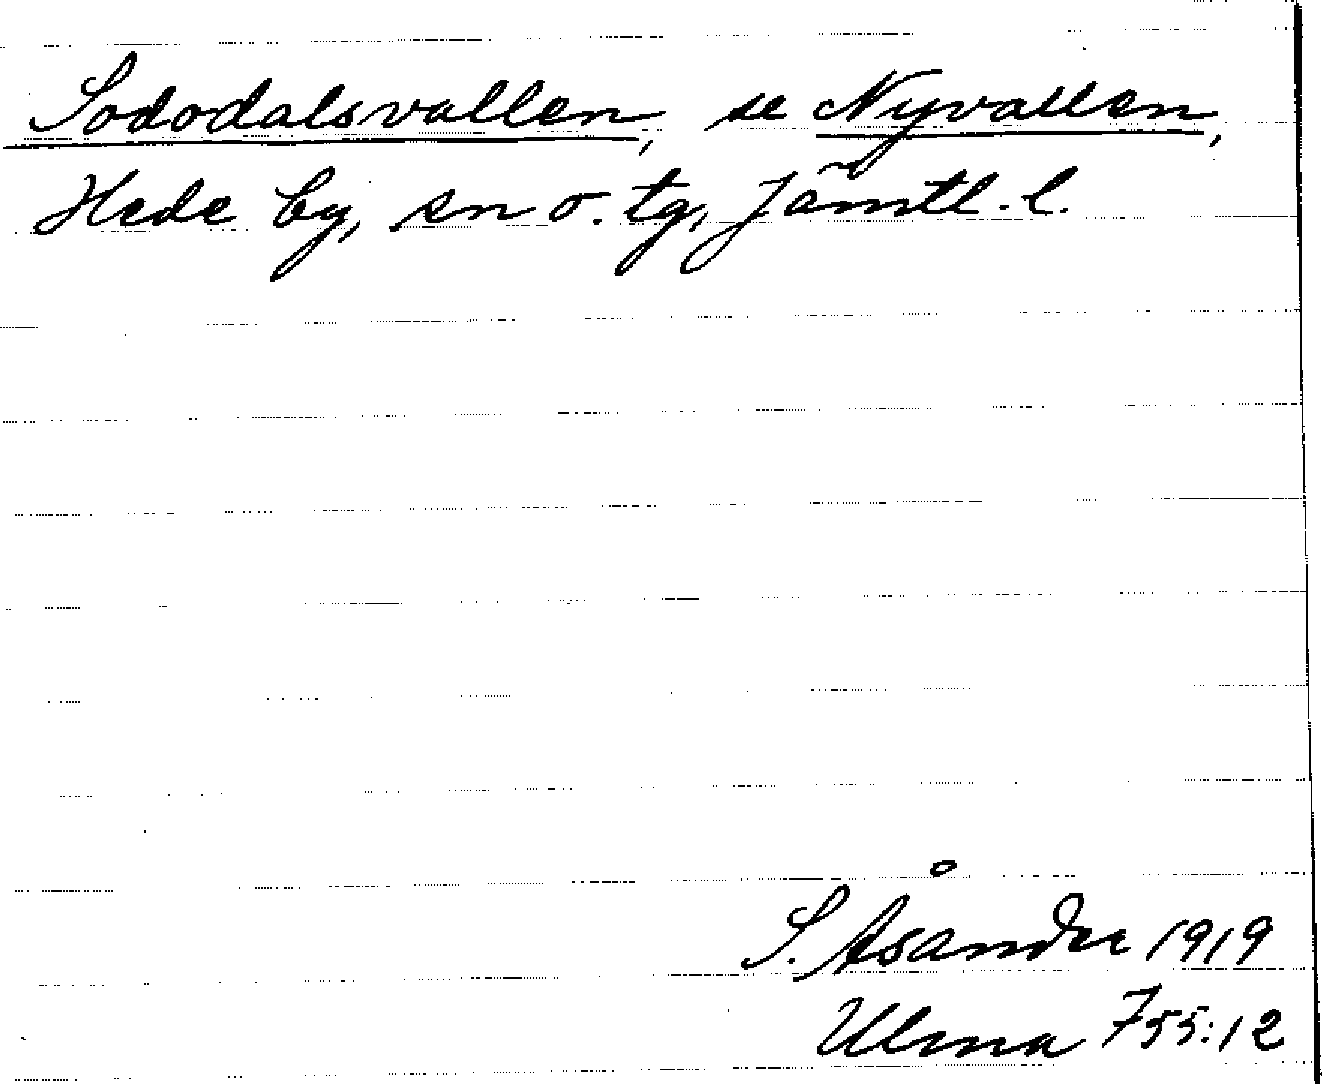 Sododalsvallen, se Nyvallen,
Hede by, sn o. tg, Jämtl. l.
S. Åsander 1919
Ulma 755:12